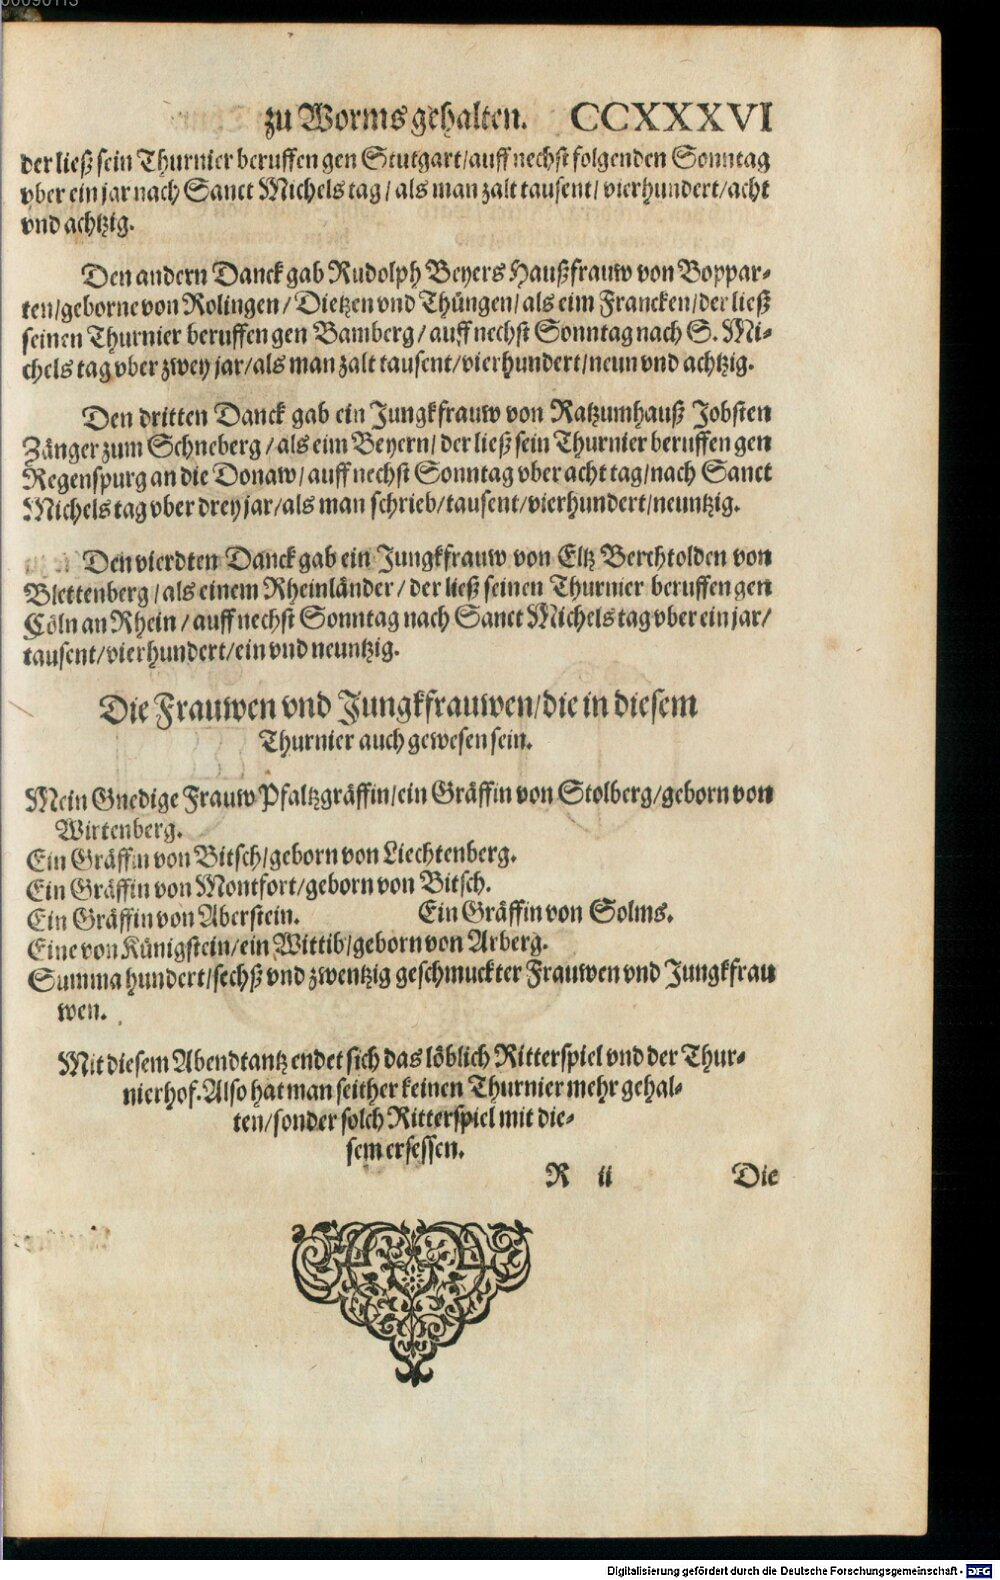 zu Worms gehalten. CCXXXVI
der ließ sein Thurnier beruffen gen Stutgart/auff nechst folgenden Sonntag
vber ein jar nach Sanct Michels tag/als man zalt tausent/vierhundert/acht
vnd achtzig.
Den andern Danck gab Rudolph Beyers Haußfrauw von Boppar-
ten/geborne von Rolingen/Dietzen vnd Thüngen/als eim Francken/der ließ
seinen Thurnier beruffen gen Bamberg/auff nechst Sonntag nach S. Mi-
chels tag vber zwey jar/als man zalt tausent/vierhundert/neun vnd achtzig.
Den dritten Danck gab ein Jungkfrauw von Ratzumhauß Jobsten
Zänger zum Schneberg/als eim Beyern/der ließ sein Thurnier beruffen gen
Regenspurg an die Donaw/auff nechst Sonntag vber acht tag/nach Sanct
Michels tag vber drey jar/als man schrieb/tausent/vierhundert/neuntzig.
Den vierdten Danck gab ein Jungkfrauw von Eltz Berchtolden von
Blettenberg/als einem Rheinländer/der ließ seinen Thurnier beruffen gen
Cöln an Rhein/auff nechst Sonntag nach Sanct Michels tag vber ein jar/
tausent/vierhundert/ein vnd neuntzig.
Die Frauwen vnd Jungkfrauwen/die in diesem
Thurnier auch gewesen sein.
Mein Gnedige Frauw Pfaltzgräffin/ein Gräffin von Stolberg/geborn von
Wirtenberg.
Ein Gräffin von Bitsch/geborn von Liechtenberg.
Ein Gräffin von Montfort/geborn von Bitsch.
Ein Gräffin von Aberstein. Ein Gräffin von Solms.
Eine von Künigstein/ein Wittib/geborn von Arberg.
Summa hundert/sechß vnd zwentzig geschmuckter Frauwen vnd Jungkfrau
wen.
Mit diesem Abendtantz endet sich das löblich Ritterspiel vnd der Thur-
nierhof. Also hat man seither keinen Thurnier mehr gehal-
ten/sonder solch Ritterspiel mit die-
sem ersessen.
R ii Die
Digitalisierung gefördert durch die Deutsche Forschungsgemeinschaft - DFG